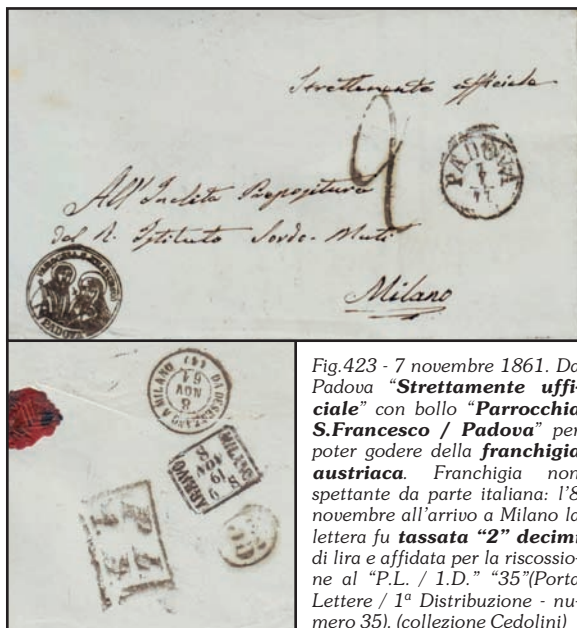 Strettamente officiale
2
PADOVA
7
11
All' Inclita Prepositura
del R. Istituto Sordo-Muti
Milano
PARROCCHIA S. FRANCESCO
PADOVA
DA DESENZANO A MILANO
8
NOV
61
MILANO
8
NOV
61
ARRIVO
P. L.
1. D.
35
Fig.423 - 7 novembre 1861. Da
Padova “Strettamente uffi-
ciale” con bollo “Parrocchia
S.Francesco / Padova” per
poter godere della franchigia
austriaca. Franchigia non
spettante da parte italiana: l’8
novembre all’arrivo a Milano la
lettera fu tassata “2” decimi
di lira e affidata per la riscossio-
ne al “P.L. / 1.D.” “35”(Porta
Lettere / 1ª Distribuzione - nu-
mero 35). (collezione Cedolini)